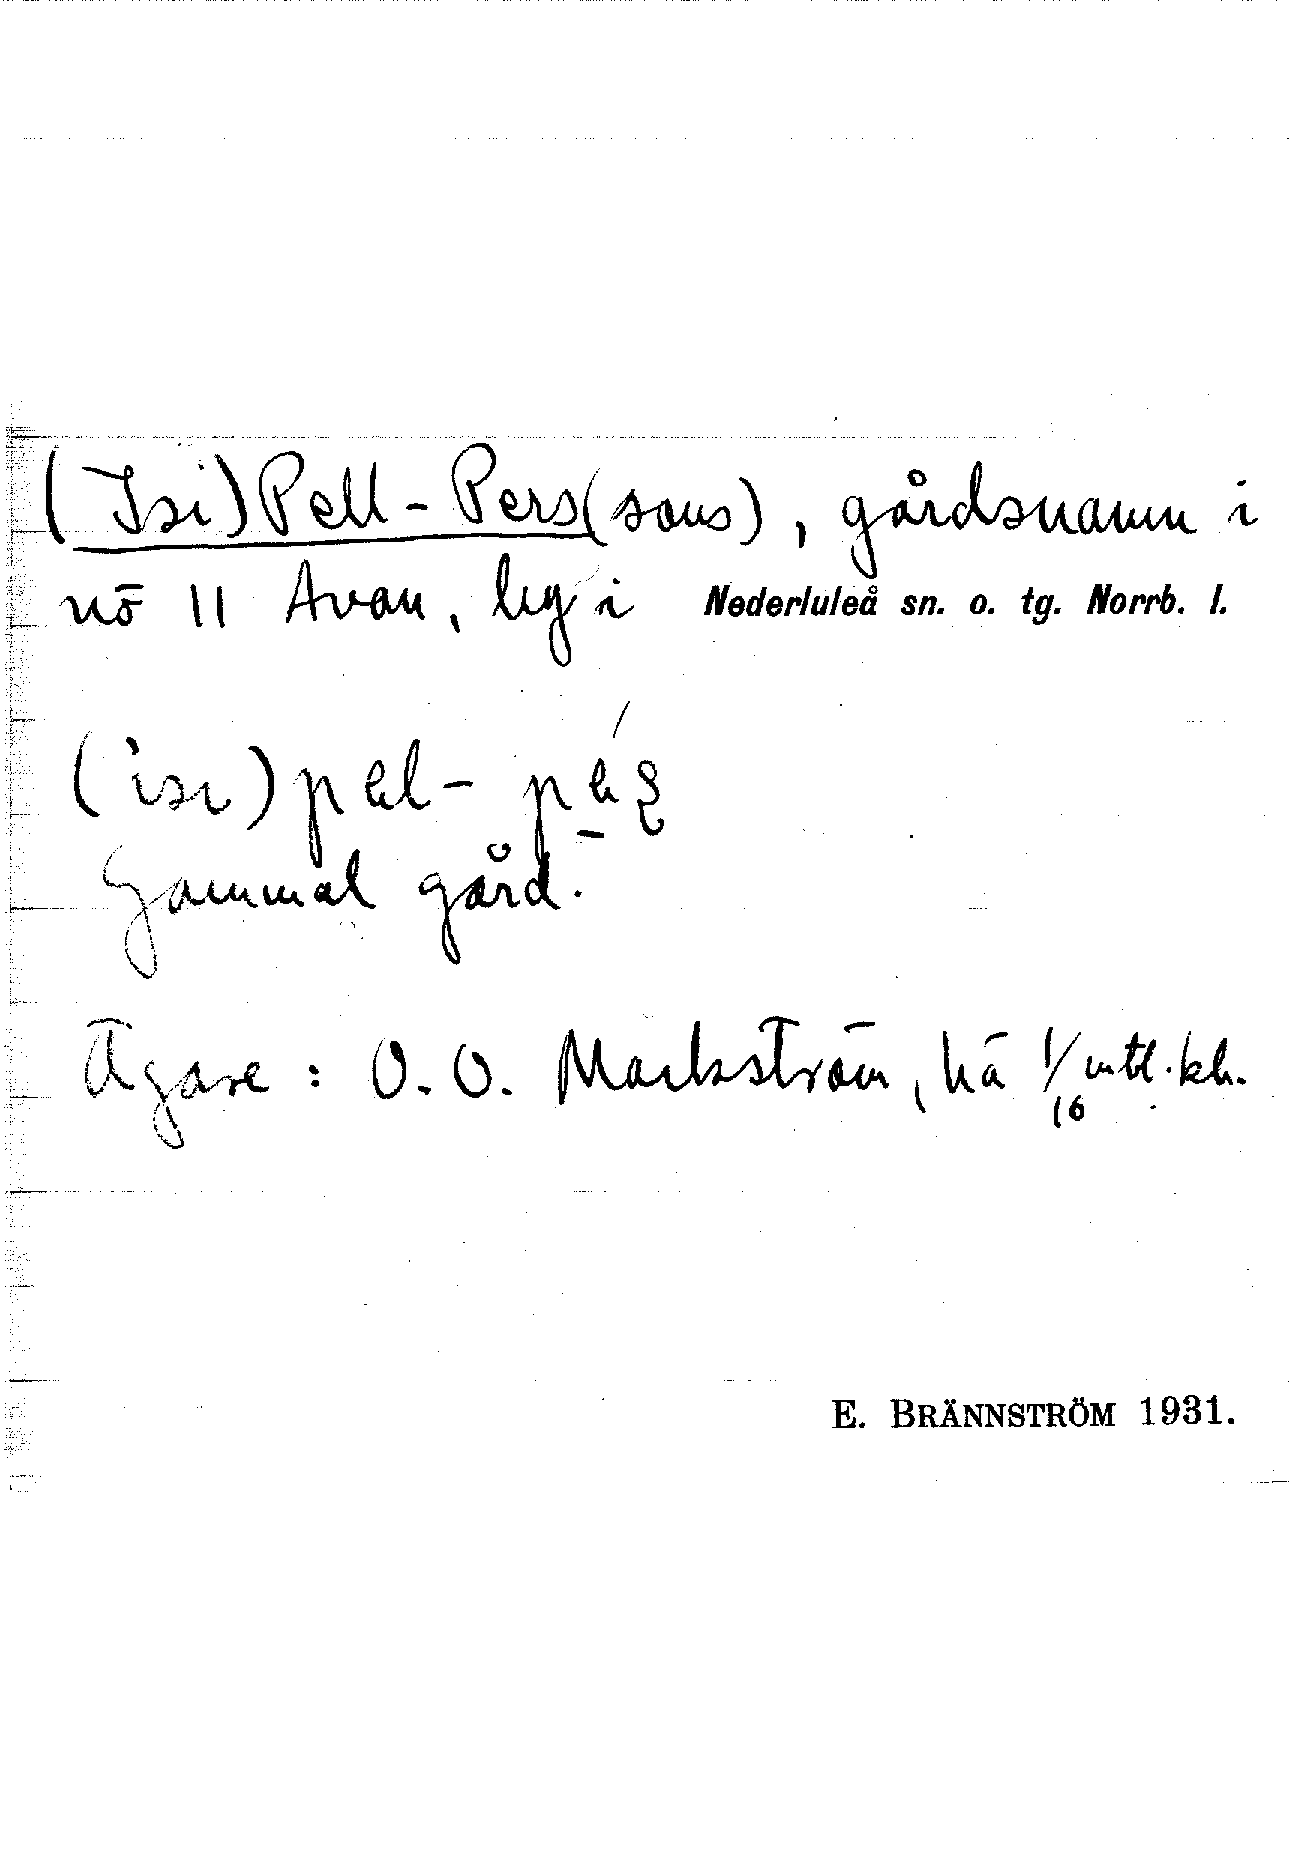 (Isi)Pell-Pers(sons), gårdsnamn i
nö 11 Avan, by i Nederluleå sn. o. tg. Norrb. l.
(isi) pel-
Gammal gård.
Ägare: O. O. Markström, hä 1/16 mtl. kh.
E. BRÄNNSTRÖM 1931.